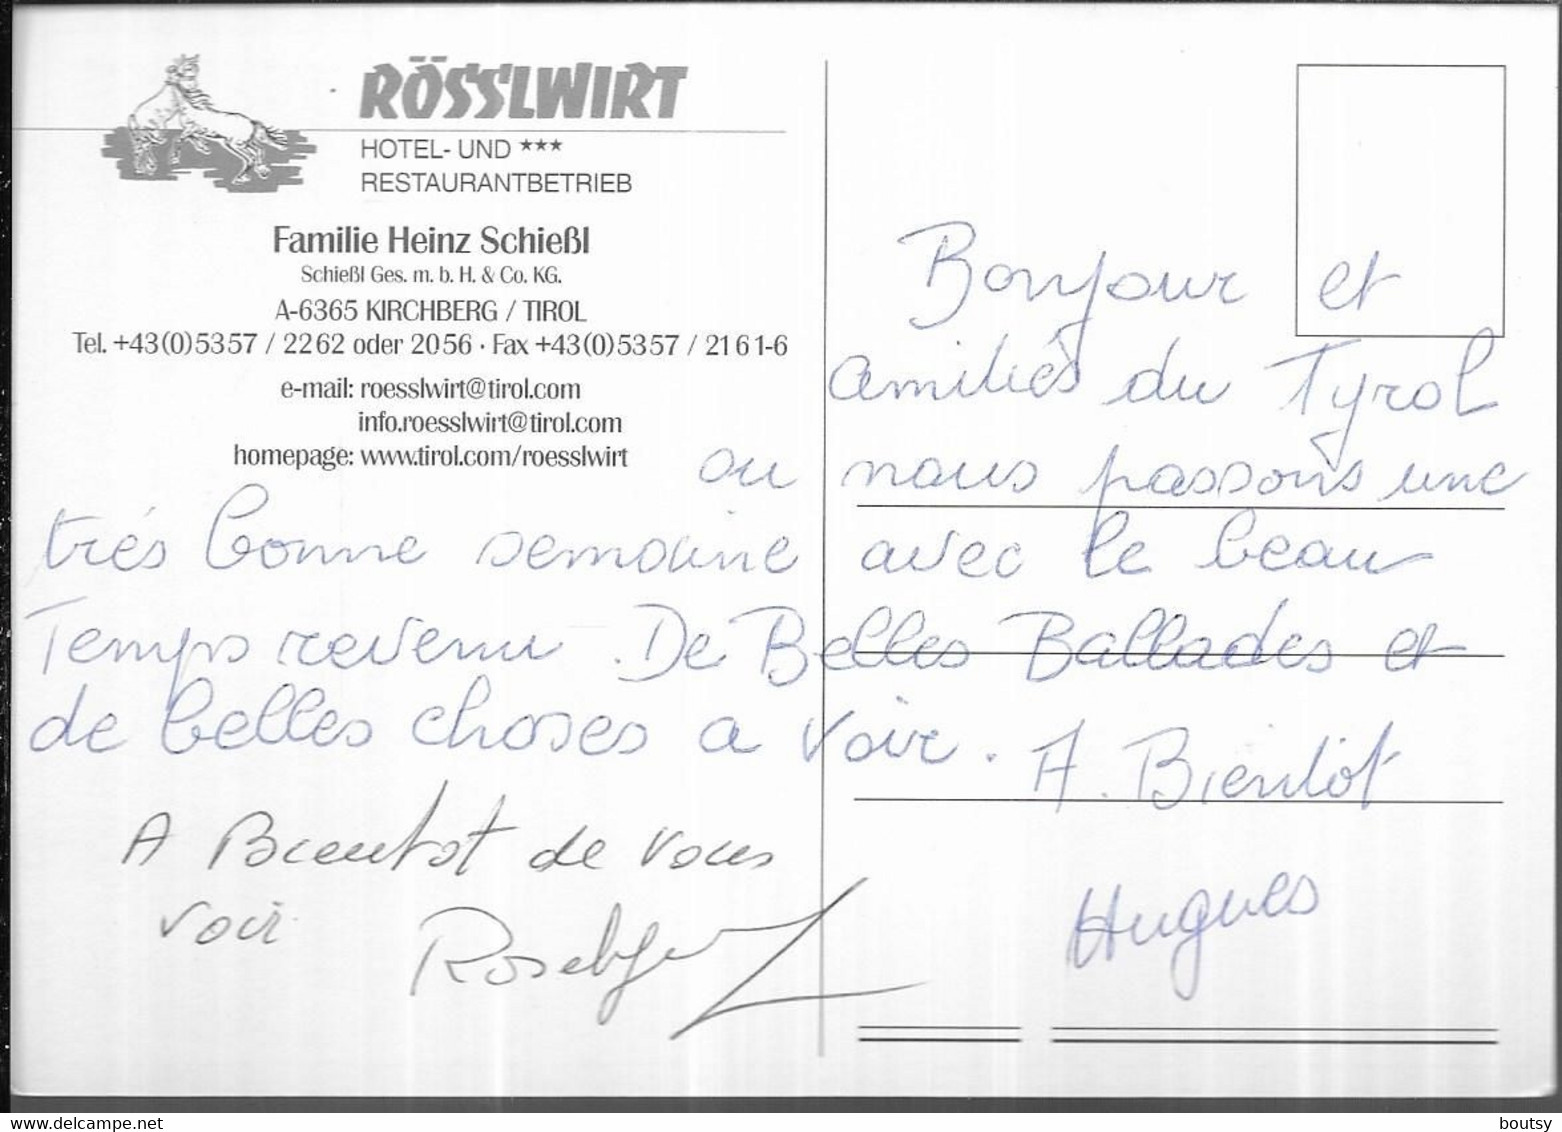 RÖSSLWIRT
HOTEL- UND ***
RESTAURANTBETRIEB
Familie Heinz Schießl
Schießl Ges. m. b. H. & Co. KG.
A-6365 KIRCHBERG / TIROL
Tel. +43(0)5357 / 2262 oder 2056 · Fax +43(0)5357 / 2161-6
e-mail: roesslwirt@tirol.com
info.roesslwirt@tirol.com
homepage: www.tirol.com/roesslwirt
Bonjour et
amitiés du Tyrol
ou nous passons une
trés bonne semaine avec le beau
Temps revenu. De Belles Ballades et
de belles choses a voir. A. Bientôt
A Bientot de vous
voir
Hugues
boutsy